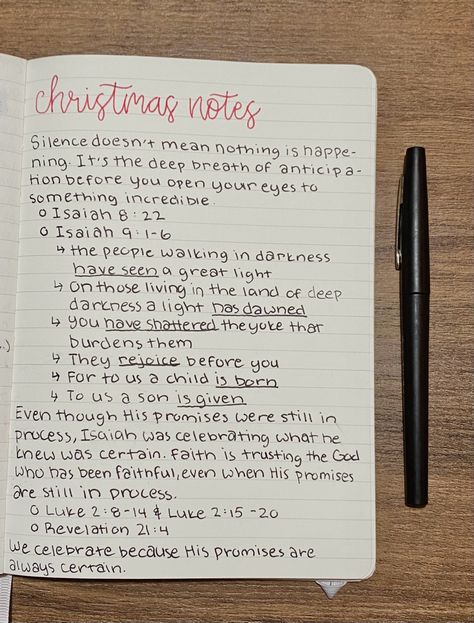 christmas notes
Silence doesn't mean nothing is happe-
ning. It's the deep breath of anticipa-
tion before you open your eyes to
something incredible.
o Isaiah 8:22
o Isaiah 9:1-6
↳ the people walking in darkness
have seen a great light
↳ On those living in the land of deep
darkness a light has dawned
↳ you have shattered the yoke that
burdens them
↳ They rejoice before you
↳ For to us a child is born
↳ To us a son is given
Even though His promises were still in
process, Isaiah was celebrating what he
knew was certain. Faith is trusting the God
who has been faithful, even when His promises
are still in process.
o Luke 2:8-14 & Luke 2:15-20
o Revelation 21:4
We celebrate because His promises are
always certain.